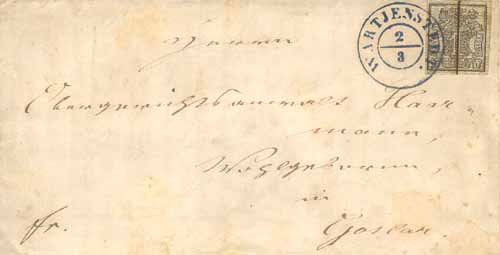 WARTJENSTEDT.
2/3
Herrn
Obergerichtsanwalt Haar-
mann,
Wohlgeboren,
in
fr.
Goslar.